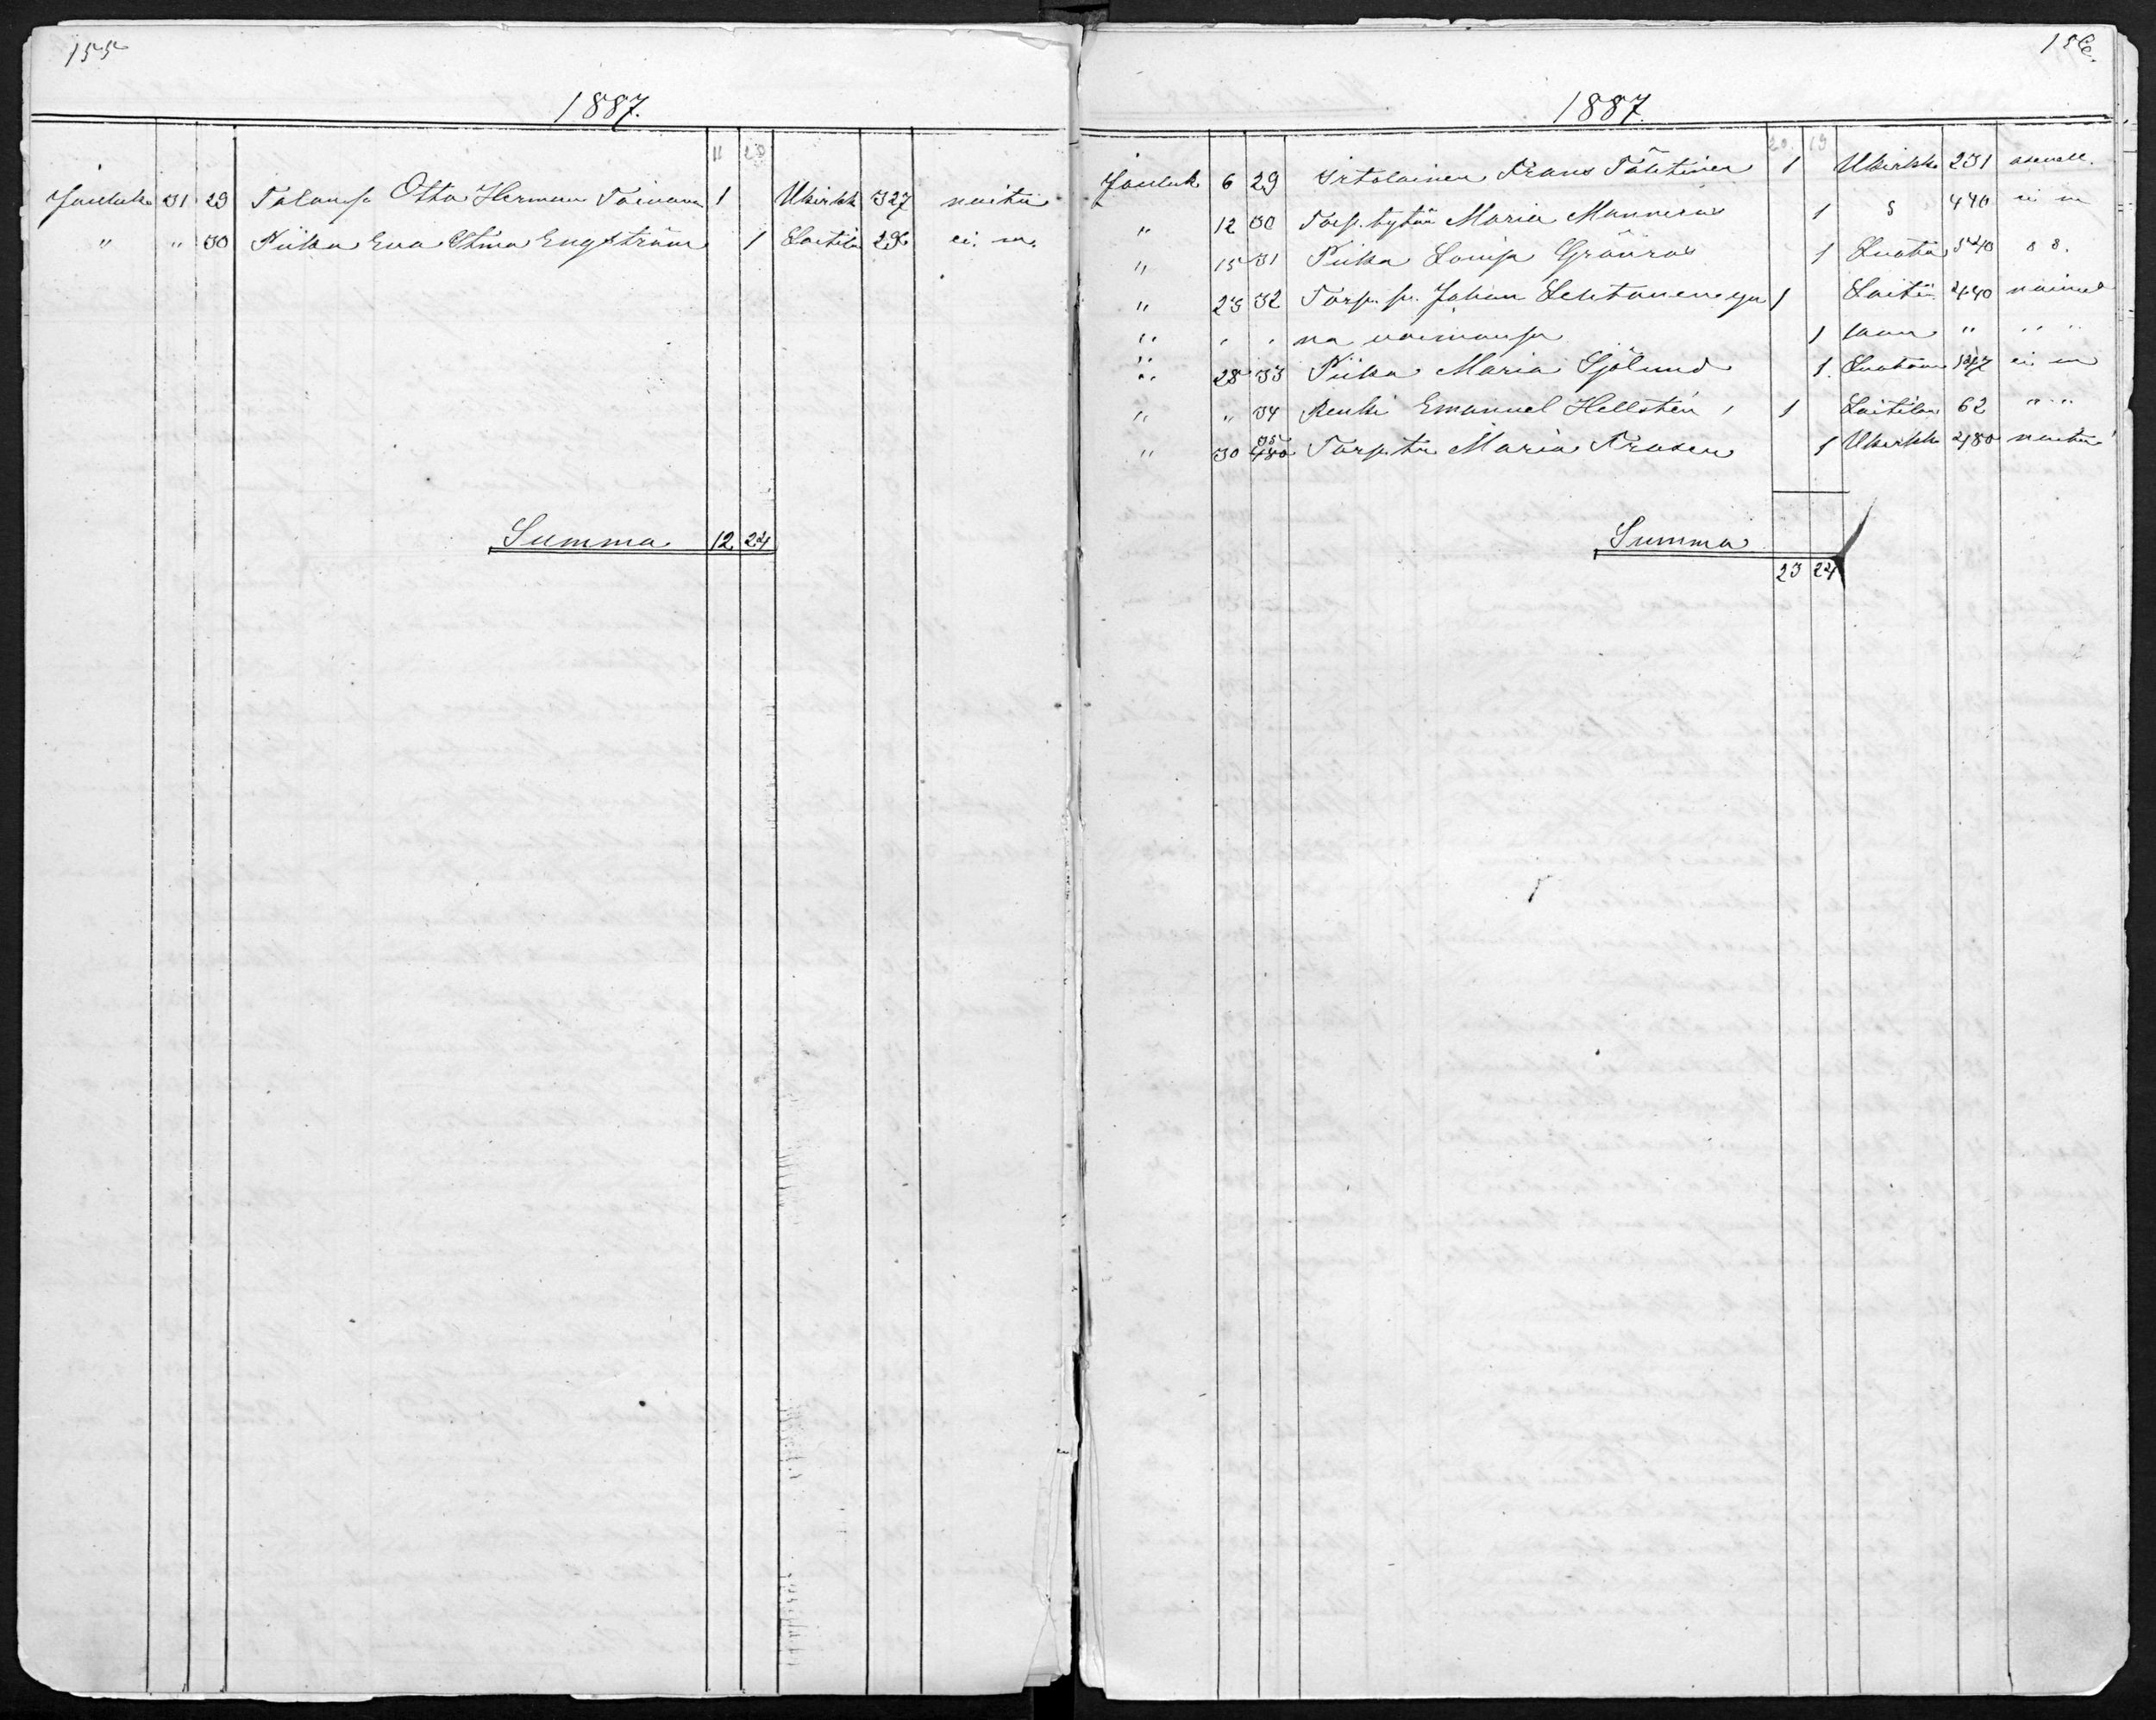 155
1887.
11 23
Jouluk. 31 29 Talonp. Otto Herman Toivonen 1 Ukirkk 327 naitu
" " 30 Piika Eva Stina Engström 1 Laitila 29 ei. n.
Summa 12 24
156.
1887.
20. 19
Jouluk 6 29 Irtolainen Frans Tähtinen 1 Ukirkk 231
" 12 30 Torp. tytär Maria Manneros 1 S 440 ei n
" 15 31 Piika Lovisa Grönroos 1 540 s s.
" 23 32 Torp. p. Johan Lehtonen yn 1 Laiti 440 nainut
" " " na vaimonsa 1 " " "
" 28 33 Piika Maria Sjölund 1. ei n
" " 34 Renki Emanuel Hellstén 1 Laitilan 62 " "
" 30 35 Torp. tr. Maria Frosen 1 Ukirkk 480 naitu
Summa
23 24